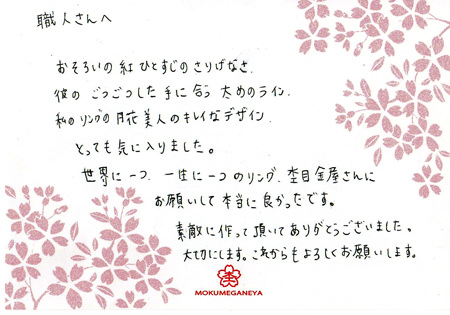 職人さんへ
おそろいの紅ひとすじのさりげなさ、
彼のごつごつした手に合う太めのライン、
私のリングの月花美人のキレイなデザイン、
とっても気に入りました。
世界に一つ、一生に一つのリング、杢目金屋さんに
お願いして本当に良かったです。
素敵に作って頂いてありがとうございました。
大切にします。これからもよろしくお願いします。
MOKUMEGANEYA